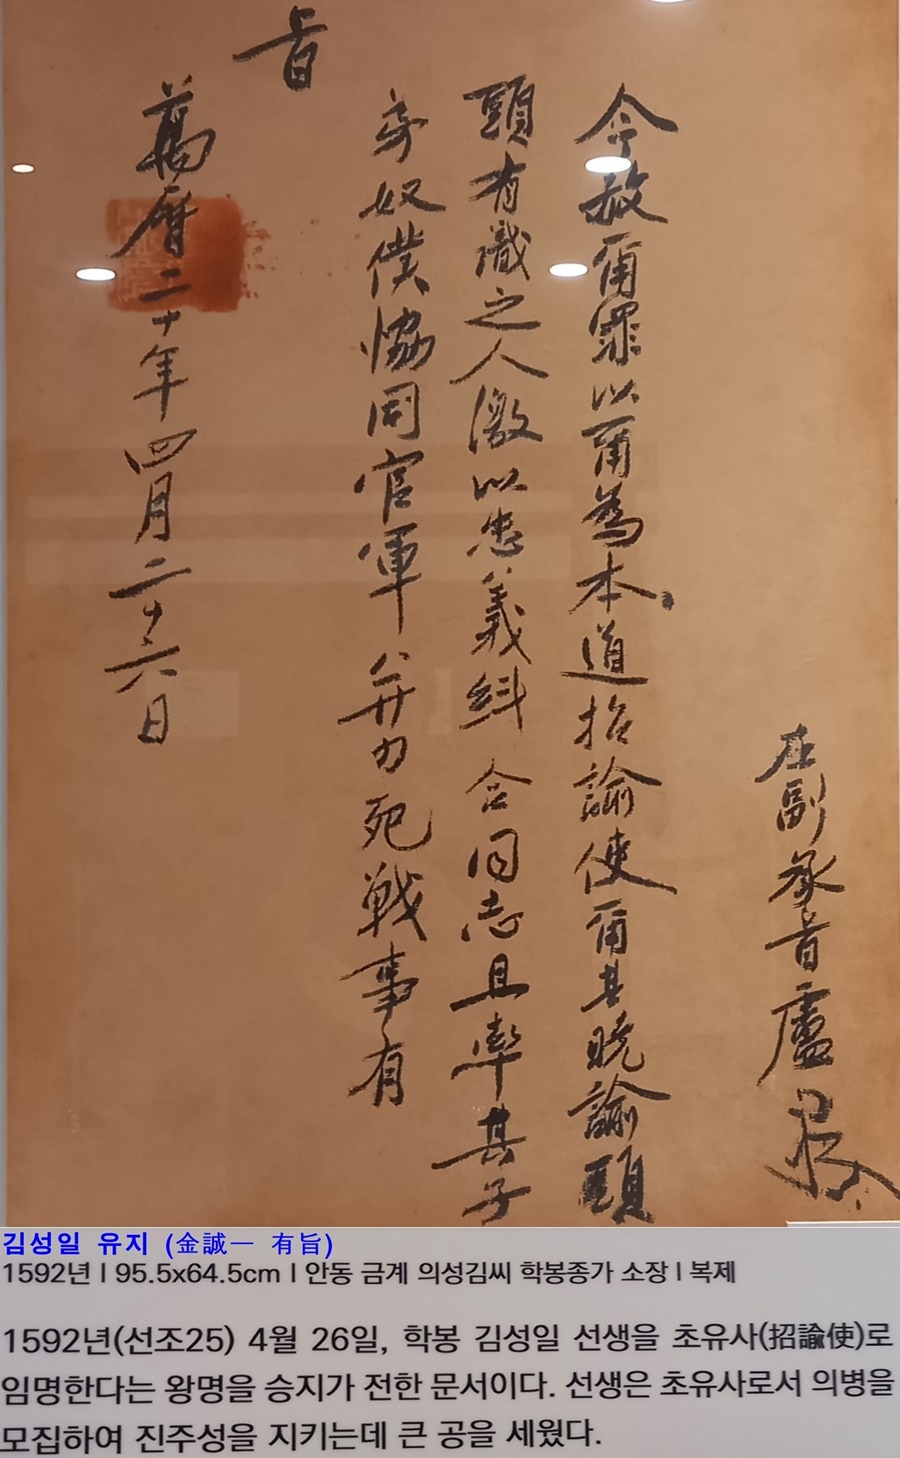 左副承旨盧
今赦爾罪以爾為本道招諭使爾其曉諭頭
頭有識之人激以忠義糾合同志且率其子
弟奴僕恊同官軍并力死戰事有
旨
萬曆二十年四月二十六日
김성일 유지 (金誠一 有旨)
1592년 | 95.5x64.5cm | 안동 금계 의성김씨 학봉종가 소장 | 복제
1592년(선조25) 4월 26일, 학봉 김성일 선생을 초유사(招諭使)로
임명한다는 왕명을 승지가 전한 문서이다. 선생은 초유사로서 의병을
모집하여 진주성을 지키는데 큰 공을 세웠다.